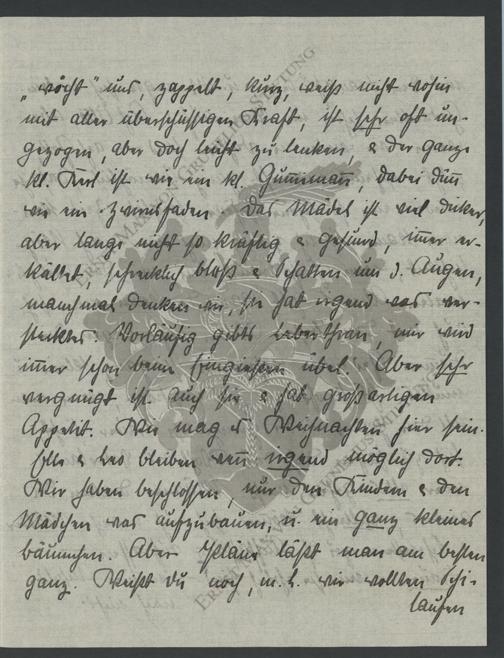 „röcht" und, zappelt, kurz, weiß nicht wohin
mit aller überschüssigen Kraft, ist sehr oft un-
gezogen, aber doch leicht zu lenken & der ganze
kl. Kerl ist wie ein kl. Gummimañ, dabei düñ
wie ein Zwirnsfaden. Das Mädel ist viel dicker,
aber lange nicht so kräftig & gesund, im̃er er-
kältet, schrecklich blaß & Schatten um d. Augen,
manchmal denken wir, sie hat irgend was ver-
stecktes. Vorläufig gibts Lebertran, mir wird
im̃er schon beim Eingießen übel. Aber sehr
vergnügt ist auch sie & hat großartigen
Appetit. Wie mag's Weihnachten hier sein.
& Leo bleiben weñ irgend möglich dort.
Wir haben beschlossen, nur den Kindern & den
Mädchen was aufzubauen, u. ein ganz kleines
bäumchen. Aber Pläne läßt man am besten
ganz. Weißt du noch, m. L. wir wollten Schi-
laufen